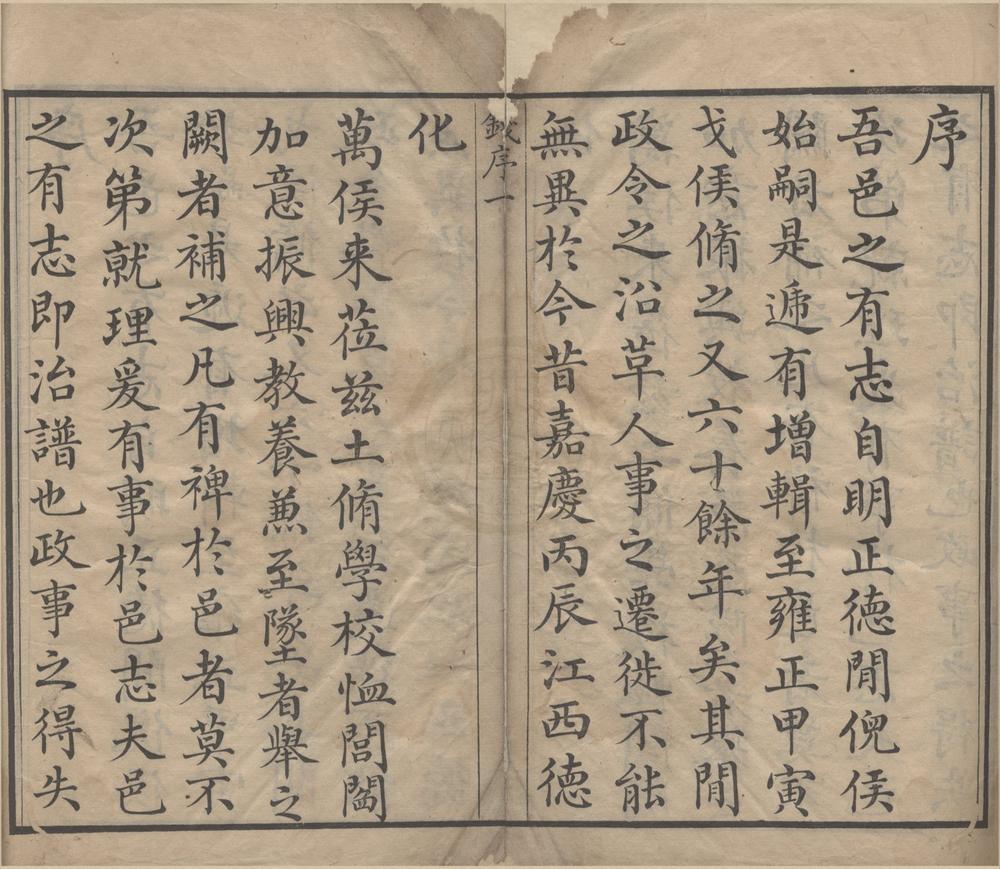 序
吾邑之有志自明正德閒倪侯
始嗣是遞有增輯至雍正甲寅
戈侯脩之又六十餘年矣其閒
政令之沿草人事之遷徙不能
無異於今昔嘉慶丙辰江西德
序一
化
萬侯来莅茲土脩學校恤閭閻
加意振興教養兼至墜者舉之
闕者補之凡有裨於邑者莫不
次第就理爰有事於邑志夫邑
之有志即治譜也政事之得失